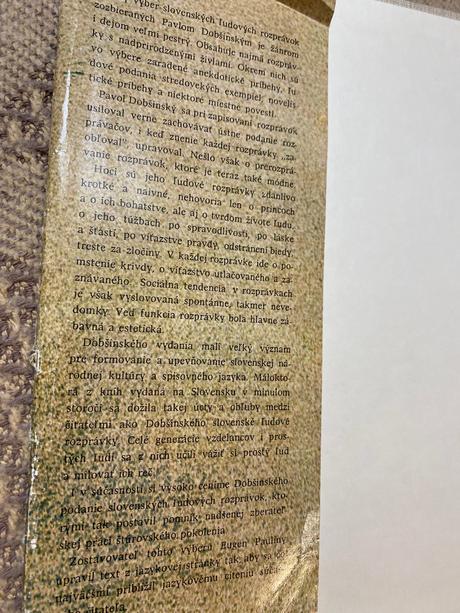 výber slovenských ľudových rozprávok
zozbieraných Pavlom Dobšinským je žánrom
i dejom veľmi pestrý. Obsahuje najmä rozpráv-
ky s nadprirodzenými živlami. Okrem nich sú
vo výbere zaradené anekdotické príbehy, ľu-
dové podania stredovekých exempiel, novelis-
tické príbehy a niektoré miestne povesti.
Pavol Dobšinský sa pri zapisovaní rozprávok
usiloval verne zachovávať ústne podanie roz-
právačov, i keď znenie každej rozprávky „za-
obľoval“, upravoval. Nešlo však o prerozprá-
vanie rozprávok, ktoré je teraz také módne.
Hoci sú jeho ľudové rozprávky zdanlivo
krotké a naivné, nehovoria len o princoch
a o ich bohatstve, ale aj o tvrdom živote ľudu,
o jeho túžbach po spravodlivosti, po láske
a šťastí, po víťazstve pravdy, odstránení biedy,
treste za zločiny. V každej rozprávke ide o po-
mstenie krivdy, o víťazstvo utláčaného a za-
znávaného. Sociálna tendencia v rozprávkach
je však vyslovovaná spontánne, takmer neve-
domky. Veď funkcia rozprávky bola hlavne zá-
bavná a estetická.
Dobšinského vydania mali veľký význam
pre formovanie a upevňovanie slovenskej ná-
rodnej kultúry a spisovného jazyka. Málokto-
rá z kníh vydaná na Slovensku v minulom
storočí sa dožila takej úcty a obľuby medzi
čitateľmi ako Dobšinského slovenské ľudové
rozprávky. Celé generácie vzdelancov i pros-
tých ľudí sa z nich učili vážiť si prostý ľud
a milovať ich reč.
I v súčasnosti si vysoko ceníme Dobšinského
podanie slovenských ľudových rozprávok, kto-
rými tak postavil pomník nadšenej zberateľ-
skej práci štúrovského pokolenia.
Zostavovateľ tohto výberu Eugen Pauliny
upravil text z jazykovej stránky tak, aby sa čo
najväčšmi priblížil jazykovému cíteniu súčas-
čitateľa.